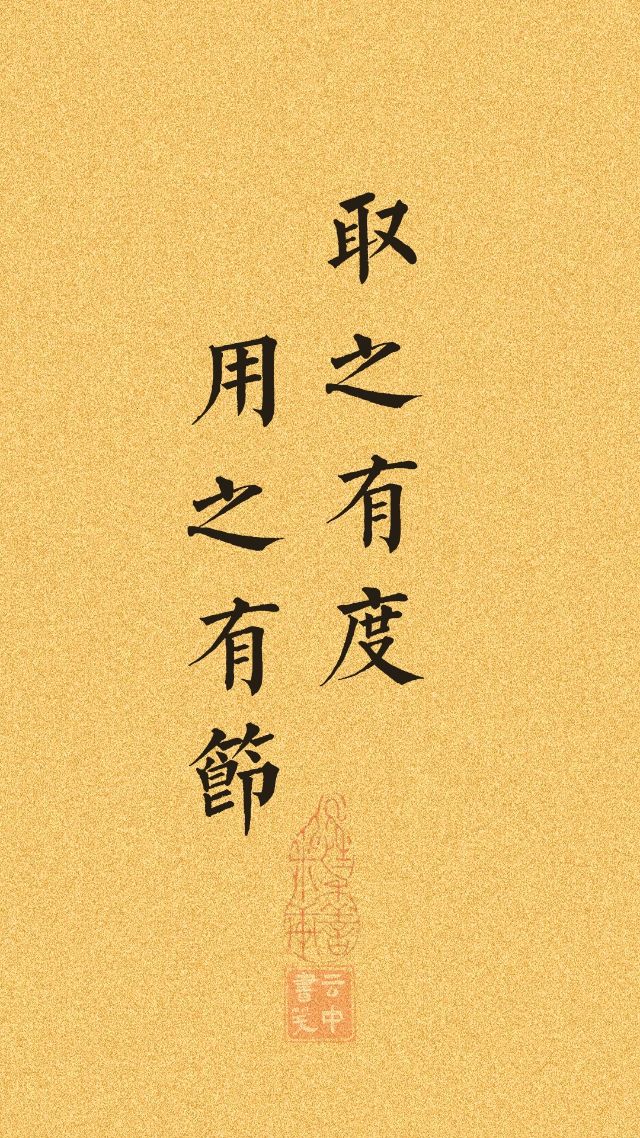 取之有度
用之有節
云中
書笺